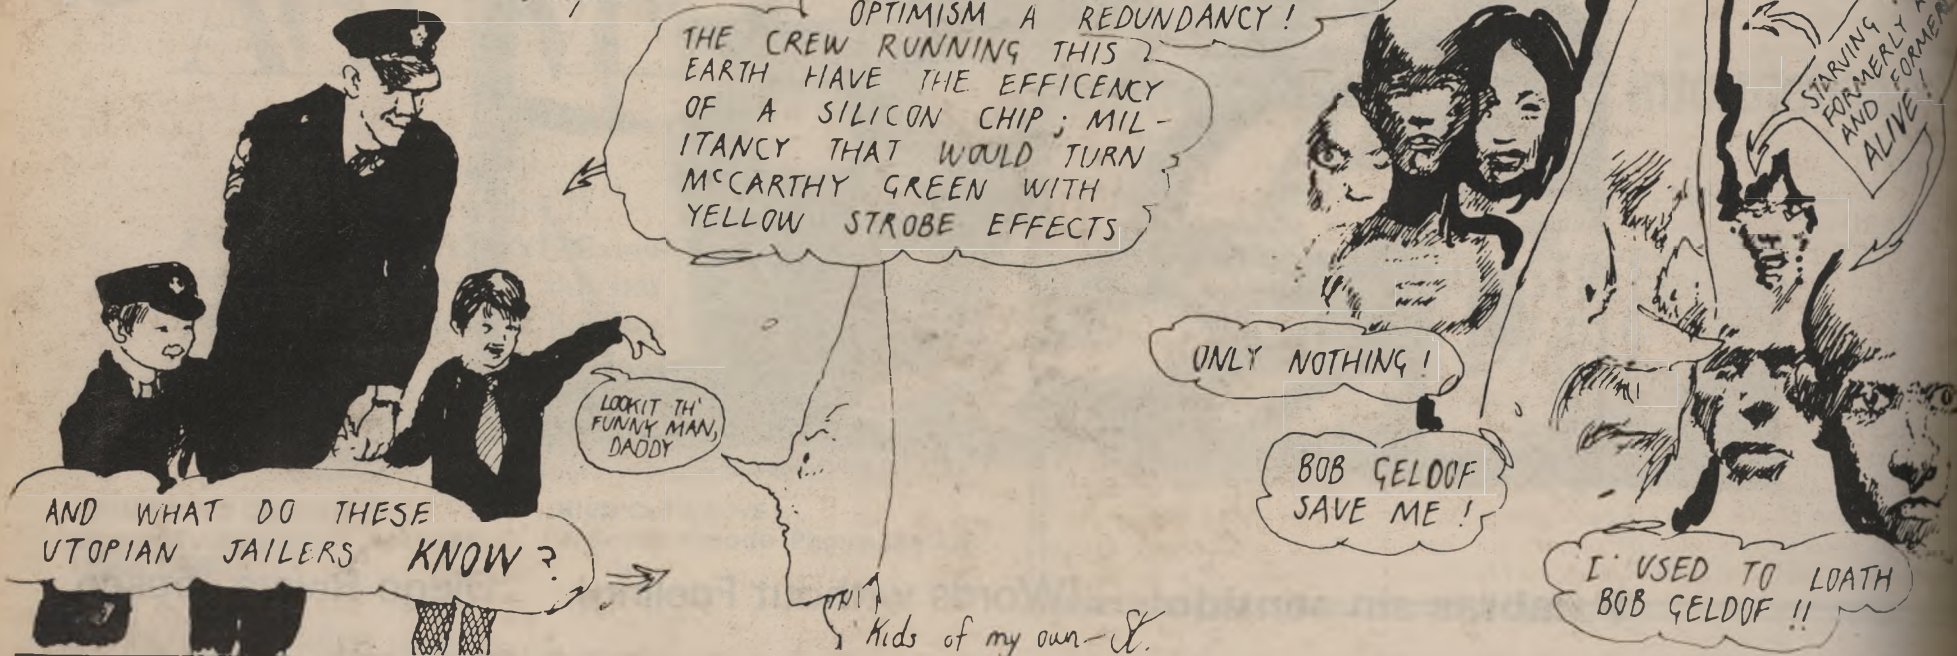 OPTIMISM A REDUNDANCY!
THE CREW RUNNING THIS
EARTH HAVE THE EFFICENCY
OF A SILICON CHIP; MIL-
ITANCY THAT WOULD TURN
McCARTHY GREEN WITH
YELLOW STROBE EFFECTS
LOOKIT TH'
FUNNY MAN,
DADDY
AND WHAT DO THESE
UTOPIAN JAILERS KNOW?
Kids of my own-
ONLY NOTHING!
BOB GELDOF
SAVE ME!
STARVING
FORMERLY
AND FORMER
ALIVE!
I USED TO LOATH
BOB GELDOF!!